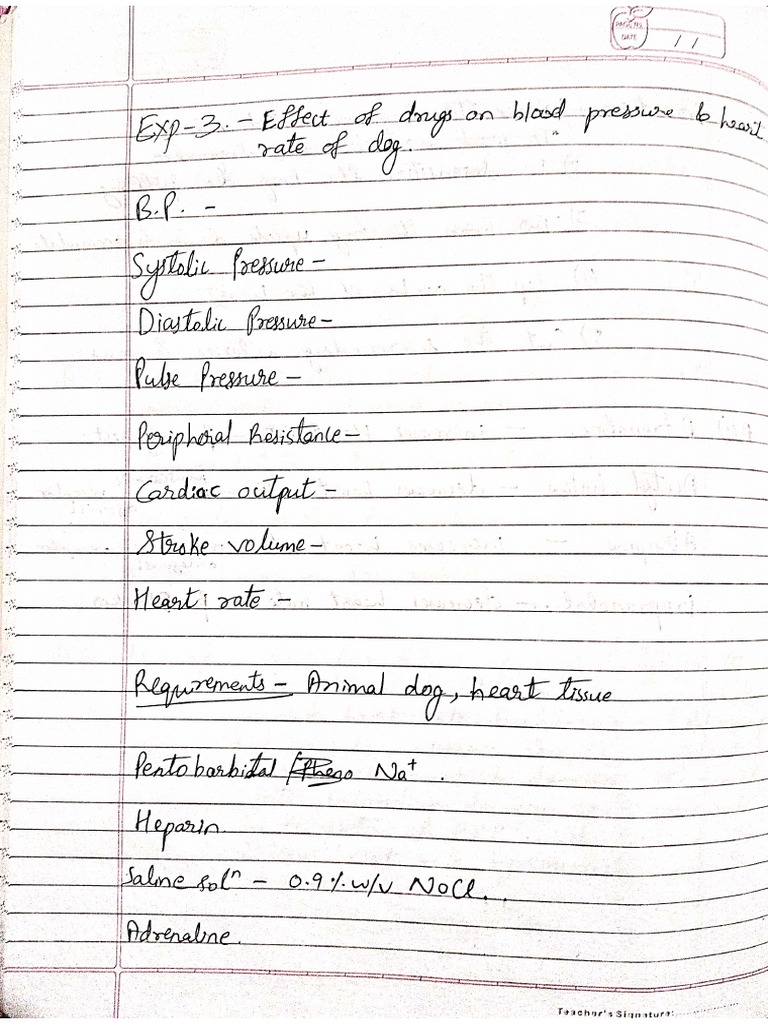 PAGE NO.
DATE
/ /
Exp-3. - Effect of drugs on blood pressure & heart
rate of dog.
B.P. -
Systolic Pressure -
Diastolic Pressure -
Pulse Pressure -
Peripheral Resistance -
Cardiac output -
Stroke volume -
Heart rate -
Requirements - Animal dog, heart tissue
Pentobarbital Na⁺.
Heparin
Saline solⁿ - 0.9% w/v NaCl.
Adrenaline.
Teacher's Signature: